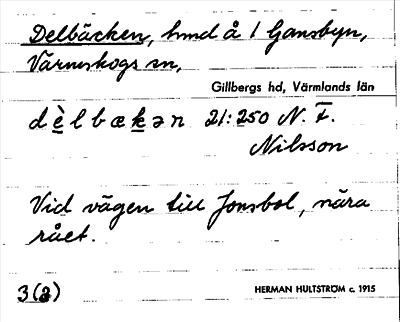 Delbäcken, hmd å 1 Gansbyn,
Värmskogs sn,
Gillbergs hd, Värmlands län
d è l b æ k ə n 21:250 N. F.
Nilsson
Vid vägen till Jonsbol, nära
rået.
3(2)
HERMAN HULTSTRÖM c. 1915